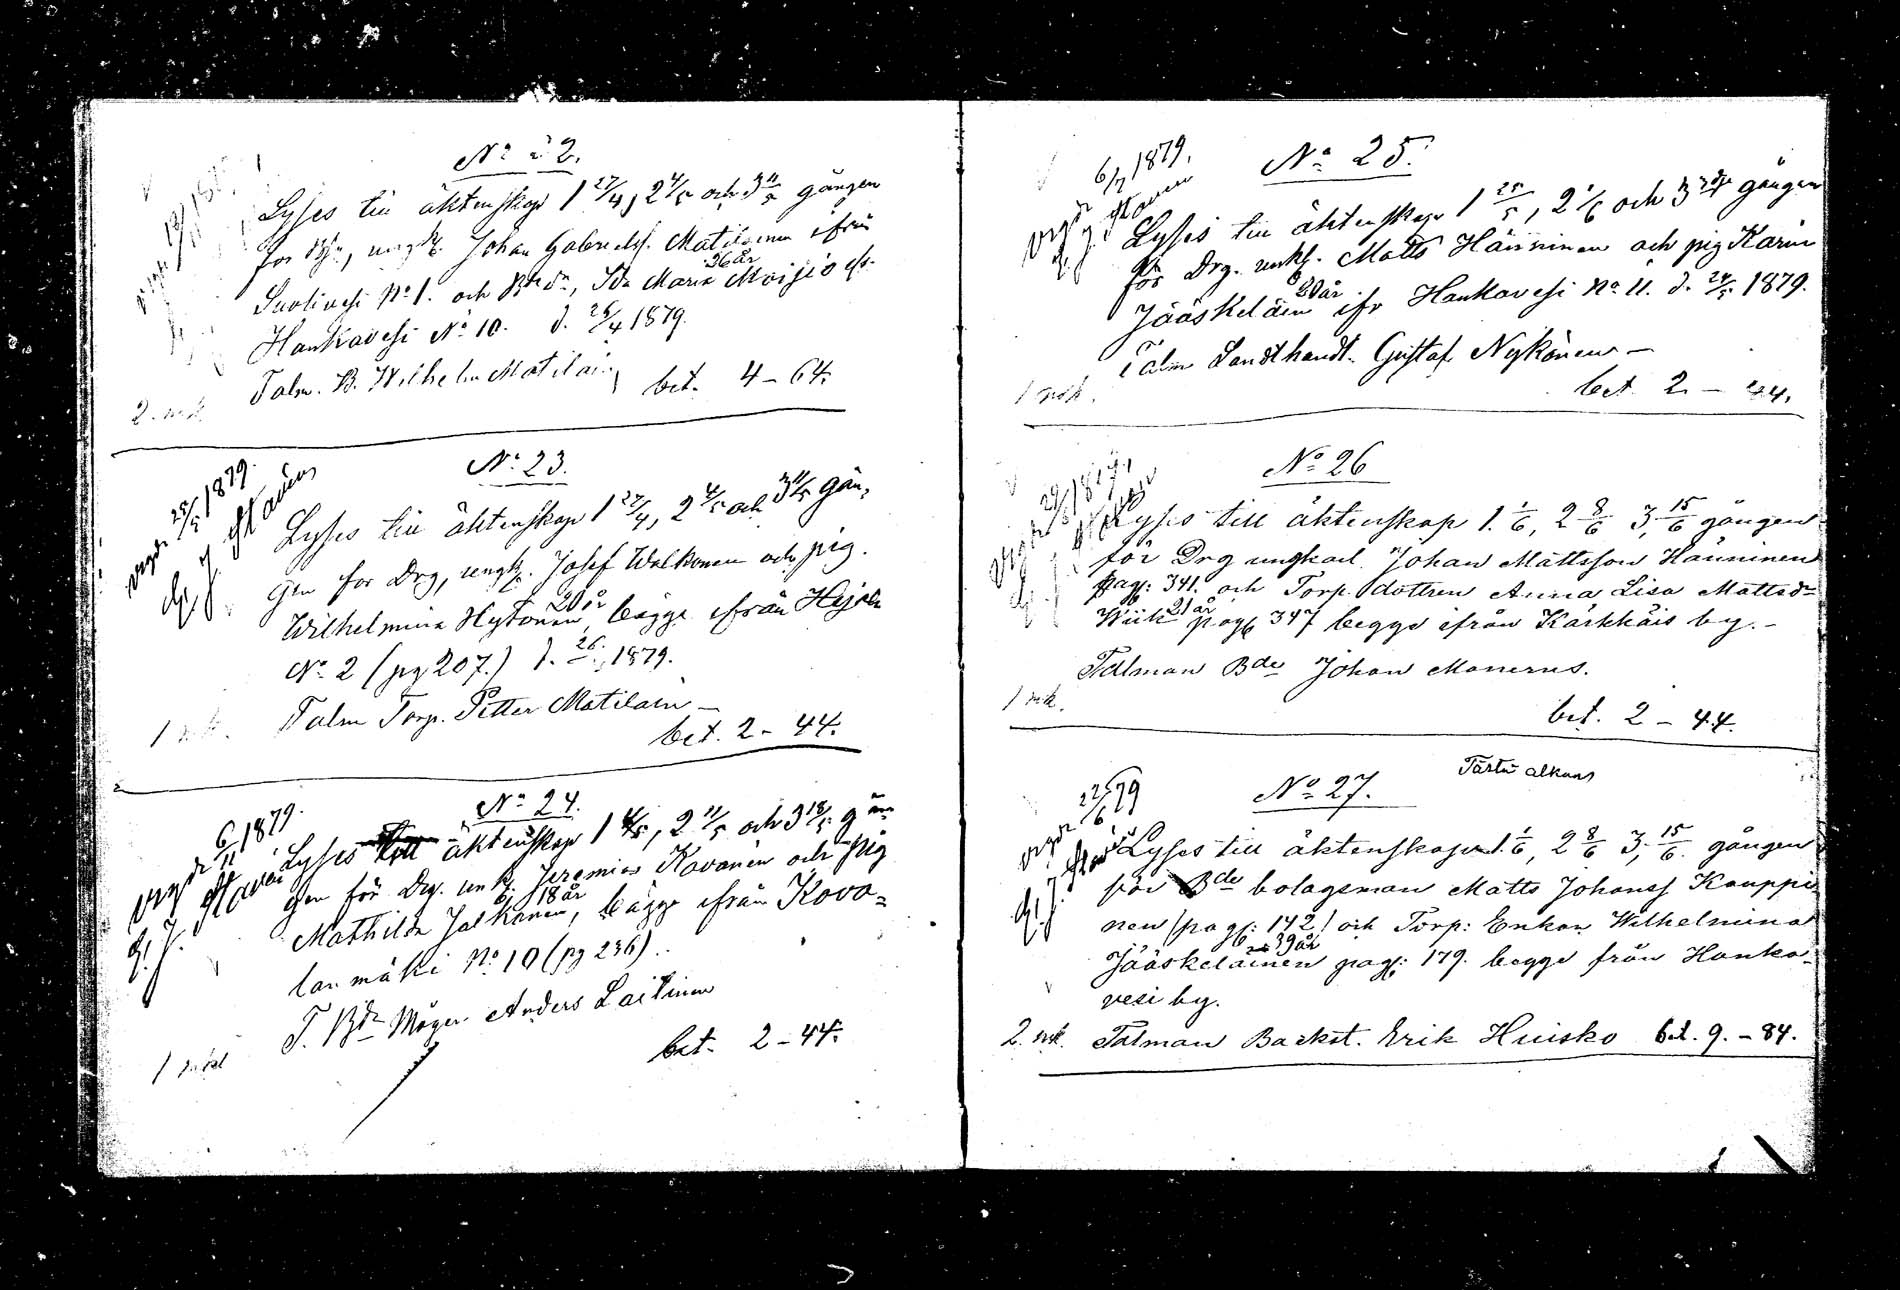 No 22.
Lyses till äktenskap 1 27/4, 2 4/5 och 3 11/5 gången
för Bde, ungk. Johan Gabrielss. Matilainen ifrån
26 år
Suolivesi No 1. och Bdedr, Ida Maria Moijio fr.
Hankavesi No 10. d. 26/4 1879.
Talm. B. Wilhelm Matilain
2. mk bet. 4 - 64.
No 23.
vigde 25/5 1879.
Lyses till äktenskap 1 27/4, 2 4/5 och 3 11/5 gån-
gen för Drg, ungk. Josef Walkonen och pig.
20 år
Wilhelmina Hytönen bägge ifrån
No 2 (pg 207.) d. 26. 1879.
Talm Torp. Petter Matilain -
1 mk. bet. 2 - 44.
No 24.
vigde 6/ 1879.
Lyses till äktenskap 1 4/5, 2 11/5 och 3 18/5 gån-
gen för Drg. unk. Jeremias Kovanen och pig
18 år
Mathilda Jalkanen, bägge ifrån Kova-
lanmäki No 10 (pg 236).
T. Bde Måger Anders Laitinen
1 mk bet. 2 - 44.
No 25.
vigde 6/7 1879.
Lyses till äktenskap 1 25/5, 2 1/6 och 3dje gången
för Drg. unk. Matts Hänninen och pig Karin
20 år
Jääskeläin ifr Hankavesi No 11. d. 24/5 1879.
Talm Landthandl. Gustaf Nykänen -
1 mk. bet. 2 - 44.
No 26
Lyses till äktenskap 1. 1/6, 2 8/6 3, 15/6 gången
för Drg ungkarl Johan Mattsson Hänninen
pag: 341. och Torp. dottren Anna Lisa Mattsdr
21 år
Wiik pag 347 begge ifrån Kärkkäis by. -
Talman Bde Johan Manerus.
1 mk. bet. 2 - 44.
Tästä alkaus
No 27.
vigde 22/6 79
Lyses till äktenskap 1. 1/6, 2 8/6 3, 15/6. gången
för Bde bolagsman Matts Johanss Kauppi-
nen (pag: 142) och Torp: Enkan Wilhelmina
39 år
Jääskeläinen pag: 179. begge från Hanka-
vesi by.
2. mk. Talman Backst. Erik Huisko bet. 9. - 84.